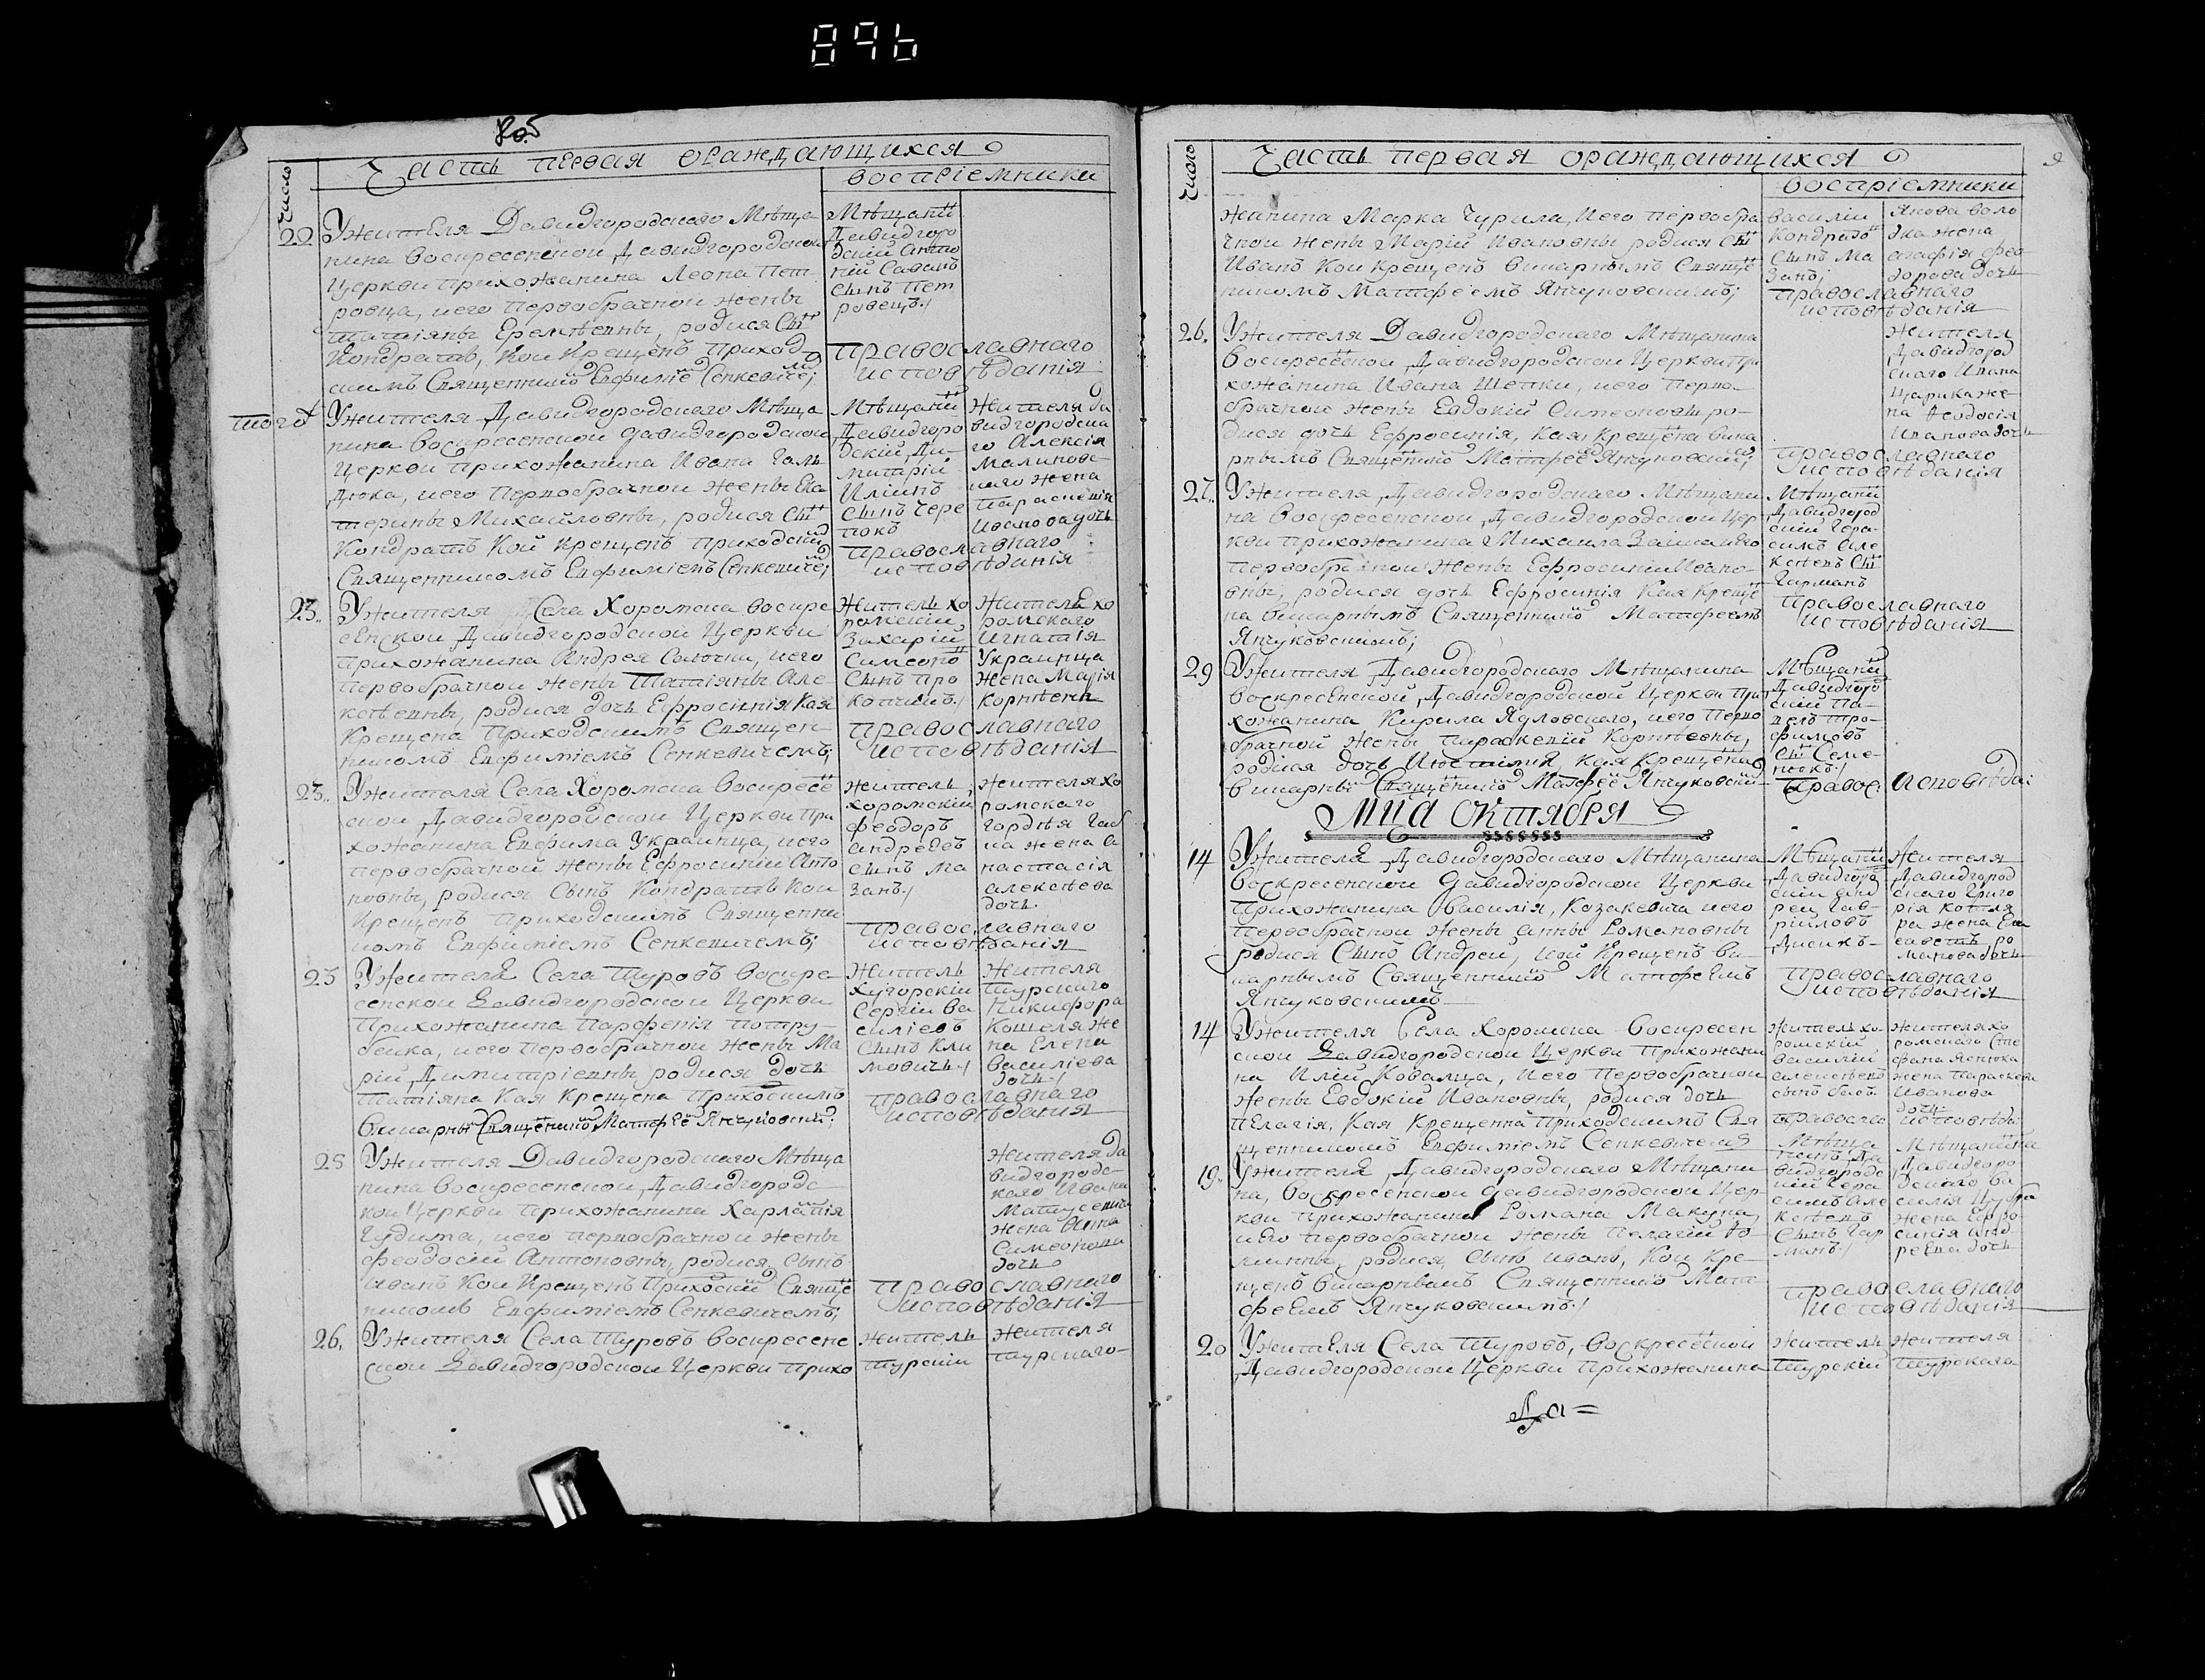 896
Часть первая ораждающихся
число
воспріемники
22
Ужителя Давидгородскаго Мѣща
нина Воскресенской Давидгородской
Церкви прихожанина Леона Пет
ровца, иего первобрачной жены
Татіяны Еремѣевны, родися
Кондратъ, кой крещенъ приход
скимъ Священнико Евфиміе Сенкевиче;
Мѣщани
Давидгоро
дскій Анто
ній Савинъ
сынъ Пет
ровецъ
православнаго
исповѣданія
того
Ужителя Давидгородскаго Мѣща
нина Воскресенской Давидгородской
Церкви прихожанина Ивана Галь
цюка, иего первобрачной жены Ека
терины Михайловны, родися
Кондратъ кой крещенъ приходски
Священникомъ Евфиміемъ Сенкевиче;
Мѣщани
Давидгоро
дскій Ди-
митрій
Иліинъ
сынъ Чере
покъ
Жителя Да
видгородска
го Алексія
Малинов
наго жена
Параскевія
Иванова дочь
православнаго
исповѣданія
23.
Ужителя Села Хоромска Воскре
сенской Давидгородской Церкви
прихожанина Андрея иего
первобрачной жены Татіяны Але
ксѣевны, родися дочь Ефросинія кая
крещена приходскимъ Священ-
никомъ Евфиміемъ Сенкевичемъ;
Житель хо
ромскій
Захарій
Симеоно
сынъ Про
копчикъ
Жителя хо
ромскаго
Игнатія
Украинца
жена Марія
Корнѣева
православнаго
исповѣданія
23..
Ужителя Села Хоромска Воскресе
ской Давидгородской Церкви при
хожанина Евфима Украинца, иего
первобрачной жены Ефросиніи Анто
новны, родися сынъ Кондратъ кой
крещенъ приходскимъ Священни
комъ Евфиміемъ Сенкевичемъ;
Житель
хоромскій
Феодоръ
Андреевъ
сынъ Ма
занъ
Жителя хо
ромскаго
Гордѣя
на жена А
настасія
Алексѣева
дочь.
православнаго
исповѣданія
25
Ужителя Села Туровъ Воскре-
сенской Давидгородской Церкви
прихожанина Парфенія Потру-
бейка, иего первобрачной жены Ма
ріи Димитріевны родися дочь
Татіяна кая крещена приходскимъ
Викарны Священнико Матфее Янчуковски
Житель
Хуторскій
Сергій Ва
силіевъ
сынъ Кли
мовичъ
Жителя
Турскаго
Никифора
Кошеля же
на Елена
Василіева
дочь
православнаго
исповѣданія
25
Ужителя Давидгородскаго Мѣща
нина Воскресенской Давидгородс
кой Церкви прихожанина Харлампія
Гудима, иего первобрачной жены
Феодосіи Антоновны, родися сынъ
Иванъ кой крещенъ приходски Священ
никомъ Евфиміемъ Сенкевичемъ;
Жителя Да
видгородс-
каго Ивана
жена Анна
Симеонова
дочь
православнаго
исповѣданія
26.
Ужителя Села Туровъ Воскресенс
ской Давидгородской Церкви прихо
Житель
Турскій
Жителя
Турскаго
Часть первая ораждающихся
число
воспріемники
жанина Марка Чурила, иего первобра
чной жены Маріи Ивановны родися
Иванъ кой крещенъ викарнымъ Свяще
никомъ Матфеемъ Янчуковскимъ;
Василій
Кондратъ
сынъ Ма
занъ;
Якова Воло
жена
Агафія Фео
дорова дочь
православнаго
исповѣданія
26.
Ужителя Давидгородскаго Мѣщанина
Воскресенской Давидгородской Церкви при
хожанина Ивана Шепки, иего перво-
брачной жены Евдокіи Симеоновны ро-
дися дочь Ефросинія, кая крещена вика
рнымъ Священнико Матфее Янчуковски;
Жителя
Давидгород
скаго Ивана
Царика же-
на Феодосія
Иванова дочь
православнаго
исповѣданія
27.
Ужителя Давидгородскаго Мѣщани
на Воскресенской Давидгородской Цер
кви прихожанина Михаила Зайца иего
первобрачной жены Ефросиніи Ивано-
вны, родися дочь Ефросинія кая креще
на викарнымъ Священнико Матфеемъ
Янчуковскимъ;
Мѣщани
Давидгород
скій Гера-
симъ Але
ксѣевъ
Гарманъ
православнаго
исповѣданія
29
Ужителя Давидгородскаго Мѣщанина
Воскресенской Давидгородской Церкви при
хожанина Кирила Ядловскаго, иего перво
брачной жены Параскевіи Корнѣевны,
родися дочь Іюстинія, кая крещена
викарны Священнико Матфее Янчуковски
Мѣщани
Давидгоро
скій Па-
велъ Тро-
фимовъ
Семе-
нюкъ
Правос: Исповѣда:
Мца Октября
14
Ужителя Давидгородскаго Мѣщанина
Воскресенской Давидгородской Церкви
прихожанина Василія, Козакевича иего
первобрачной жены Анны Романовны
родися сынъ Андрей, кой крещенъ ви-
карнымъ Священнико Матфеемъ
Янчуковскимъ
Мѣщани
Давидгоро
скій Анд
рей Гав-
рііловъ
Жителя
Давидгород
скаго Григо
рія Котля
ра жена Ели
саветъ Ро
манова дочь
православнаго
исповѣданія
14
Ужителя Села Хоромска Воскресен
ской Давидгородской Церкви прихожани
на Иліи Ковальца, иего первобрачной
жены Евдокіи Ивановны, родися дочь
Пелагія, кая крещенна приходскимъ Свя
щенникомъ Евфиміемъ Сенкевичемъ
Житель хо-
ромскій
Василій
Алексѣевъ
сынъ
Жителя хо
ромскаго Сте
фана
жена Параскева
Иванова
дочь
православна исповѣда
19.
Ужителя Давидгородскаго Мѣщани
на, Воскресенской Давидгородской Цер-
кви прихожанина Романа Макуха,
иего первобрачной жены Пелагіи Фо-
минны, родися, сынъ Иванъ, кой кре-
щенъ викарнымъ Священнико Мат-
феемъ Янчуковскимъ
Мѣща
нинъ Да
видгородс
кій Гера
симъ Але
ксѣевъ
сынъ Гар
манъ
Мѣщанина
Давидгоро
дскаго Ва
силія Цубра
жена Ефро-
синія Анд-
реева дочь
православнаго
исповѣданія
20
Ужителя Села Туровъ, Воскресенской
Давидгородской Церкви прихожанина
Житель
Турскій
Жителя
Турскаго